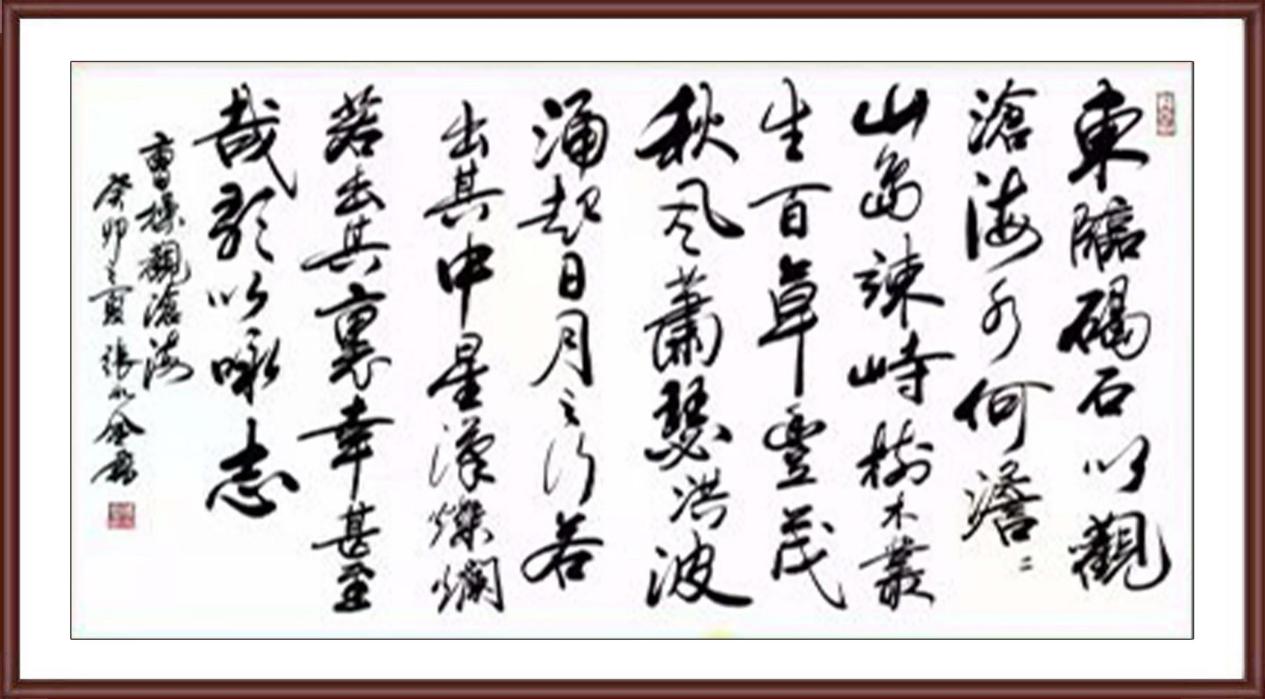 東臨碣石以觀
滄海水何澹〻
山島竦峙樹木叢
生百草豐茂
秋風蕭瑟洪波
涌起日月之行若
出其中星漢燦爛
若出其裏幸甚至
哉歌以咏志
曹操觀滄海
癸卯之夏張